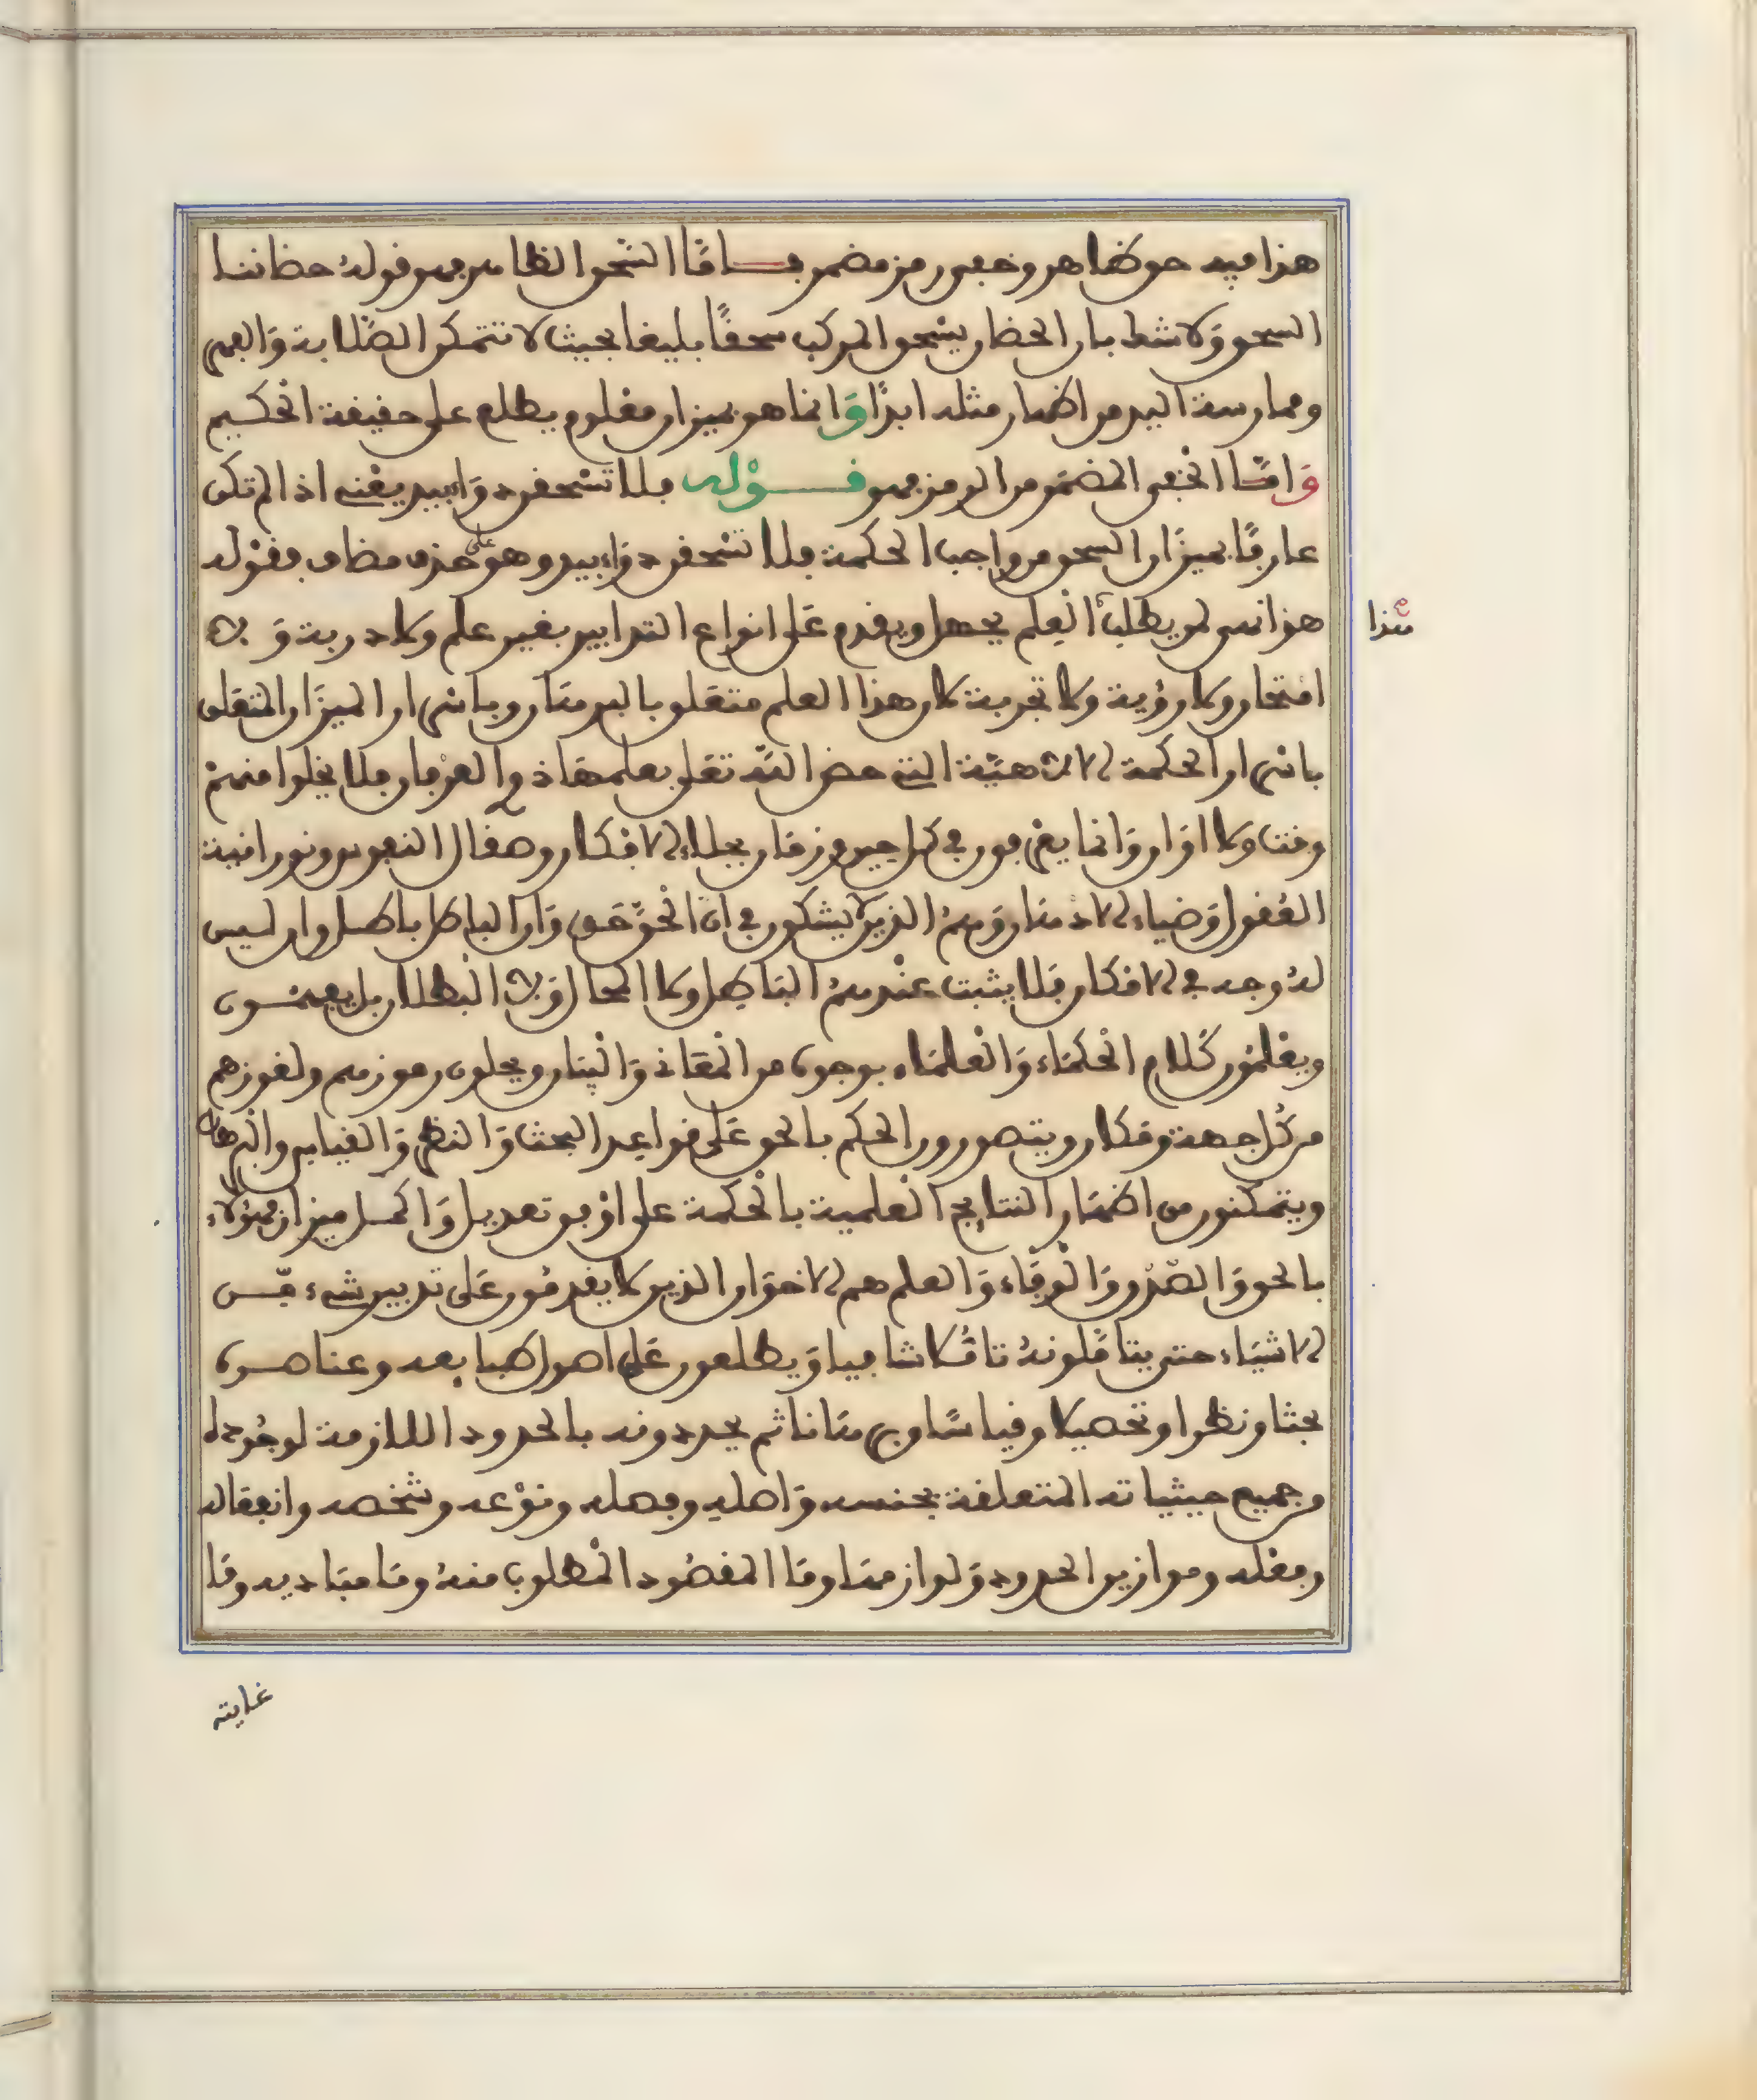 هذا فيه حق ظاهر وخفي رمز مضمر فاما السحق الظاهر فهو قوله
السحق ولا شك بان يسحق المركب سحقا بليغا بحيث لا تتمكن الصلابة والفهر
وممارسة اليد من اظهار مثله ابدا وانما هو بميزان معلوم يطلع على حقيقة الحكيم
واما الخفي المضمر من الرمز فهو قوله فلا تسحقن دوابيد يعني اذا لم تكن
عارفا بميزان السحق من واجب الحكمة فلا تسحقن دوابيد وهو على حذف مضاف فقوله
هذا لمن يطلب العلم بجهل ويقدم على انواع التدابير بغير علم ولا دربة ولا
امتحان ولا رؤية ولا تجربة لان هذا العلم متعلق بالبرهان وباسرار الميزان المتعلق
باسرار الحكمة الالاهية التي حض الله تعلى بعلمها ذوي العرفان فلا يخلوا منهم
وقت ولا اوان وانما يعرفون في كل حين وزمان بجلاء الافكار وصقال النفوس ونورانية
العقول وضياء الاذهان وهم الذين لا يشكون في ان الحق حق وان الباطل باطل وان ليس
له وجه في الافكار فلا يثبت عندهم الباطل ولا المحال ولا البطلان بل يفهمون
ويعلمون كلام الحكماء والعلماء بوجوه من المعاني والبيان ويحلون رموزهم ولغوزهم
من كل جهة ومكان ويتصورون الحكم بالحق على قواعد البحث والنظر والقياس والبرهان
ويتمكنون من اظهار النتايج العلمية بالحكمة على اوفق تعديل واكمل ميزان فهؤلاء
بالحق والصدق والوفاء والعلم هم الاخوان الذين لا يقدمون على تدبير شيء من
الاشياء حتى يتاملونه تاملا شافيا ويطلعون على اصول طبايعه وعناصره
بحثا ونظرا وتحصيلا وقياسا وبرهانا ثم يحددونه بالحدود اللازمة لوجوده
وجميع حيثياته المتعلقة بجنسه واصله وفصله ونوعه وشخصه وانفعاله
وفعله وموازين الحدود ولوازمها وما المقصود المطلوب منه وما مباديه وما
هذا
غايته